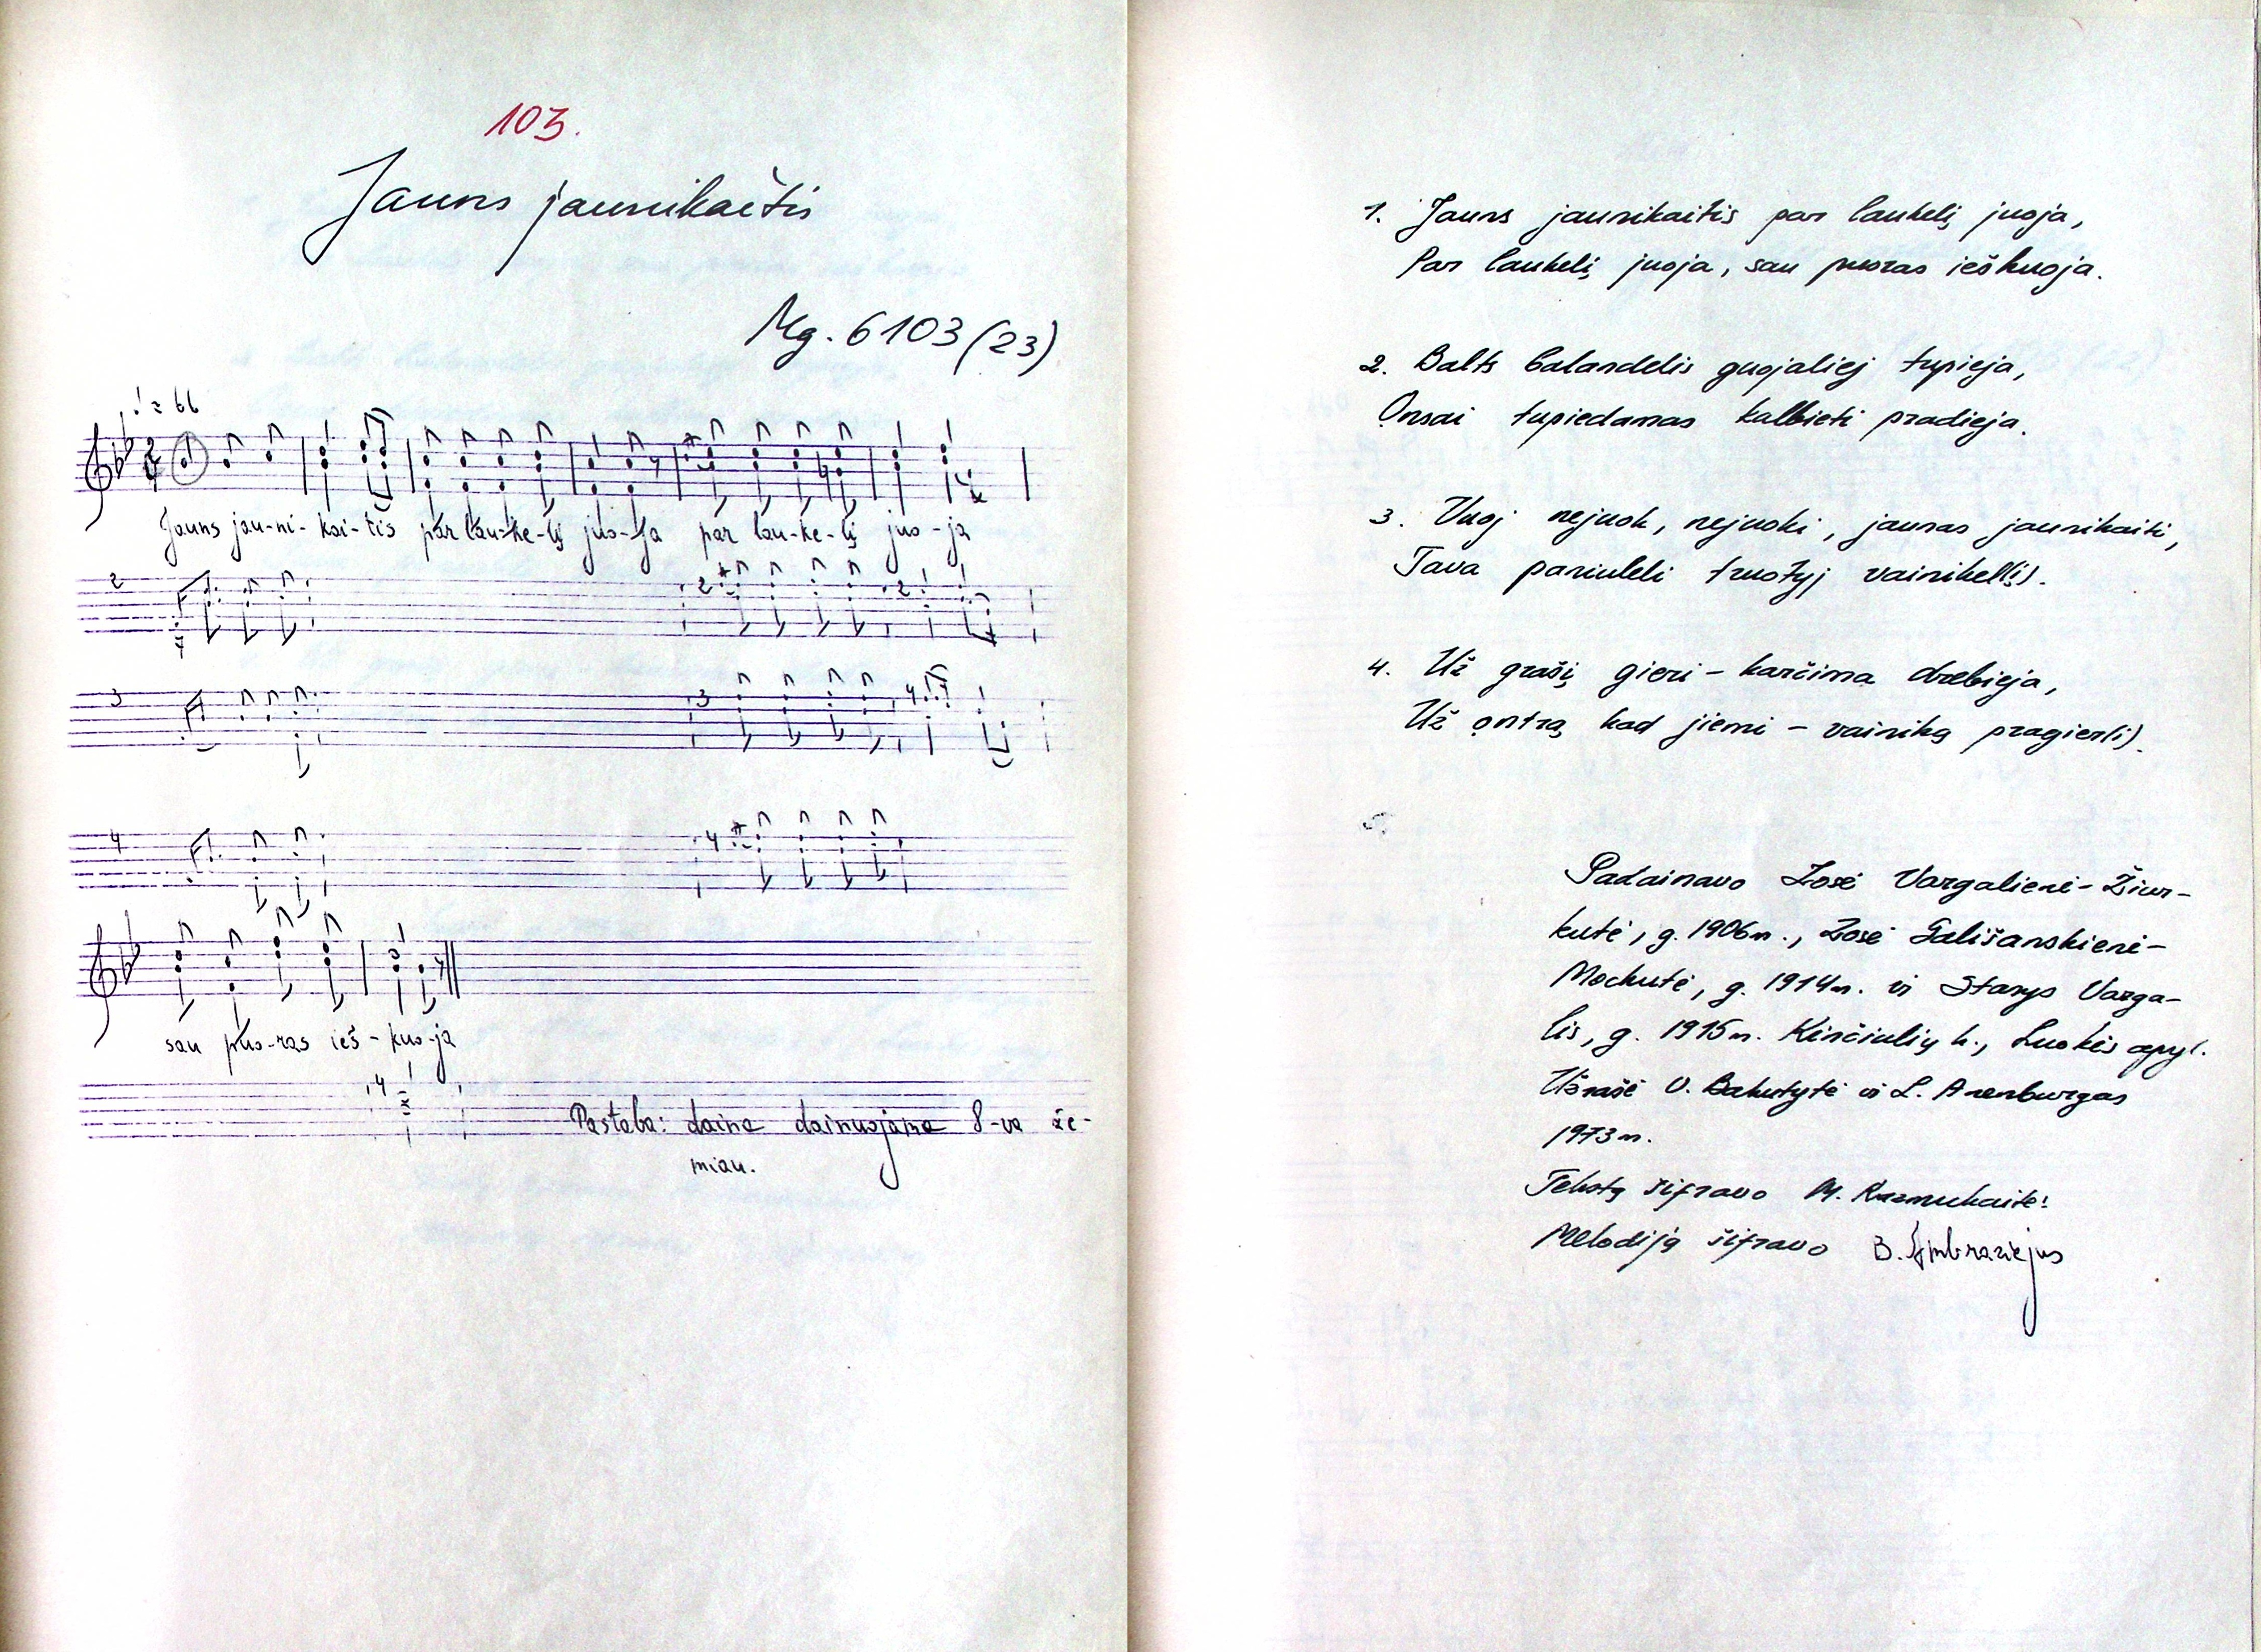 103.
Jauns jaunikaitis
Mg. 6103 (23)
♩ = 66
Jauns jau-ni-kai-tis par lau-ke-lį juo-ja par lau-ke-lį juo-ja
2 2 2
3 3 4
4 4
sau puo-ras ieš-kuo-ja
4
Pastaba: daina dainuojama 8-va že-
miau.
1. Jauns jaunikaitis par laukelį juoja,
Par laukelį juoja, sau puoras ieškuoja.
2. Balts balandelis guojaliej tupieja,
Onsai tupiedamas kalbieti pradieja.
3. Vuoj nejuok, nejuoki, jaunas jaunikaiti,
Tava paniuleli truotyj vainikel(į).
4. Už grašį gieri – karčima drebieja,
Už ontrą kad jiemi – vainiką pragier(i).
5.
Padainavo Zosė Vargalienė-Žiur-
kutė, g. 1906m., Zosė Gališanskienė-
Mockutė, g. 1914m. ir Stasys Varga-
lis, g. 1915m. Kinčiulių k., Luokės apyl.
Užrašė O. Bakutytė ir L. Arenburgas
1973m.
Tekstą šifravo M. Razmukaitė
Melodiją šifravo B. Ambraziejus